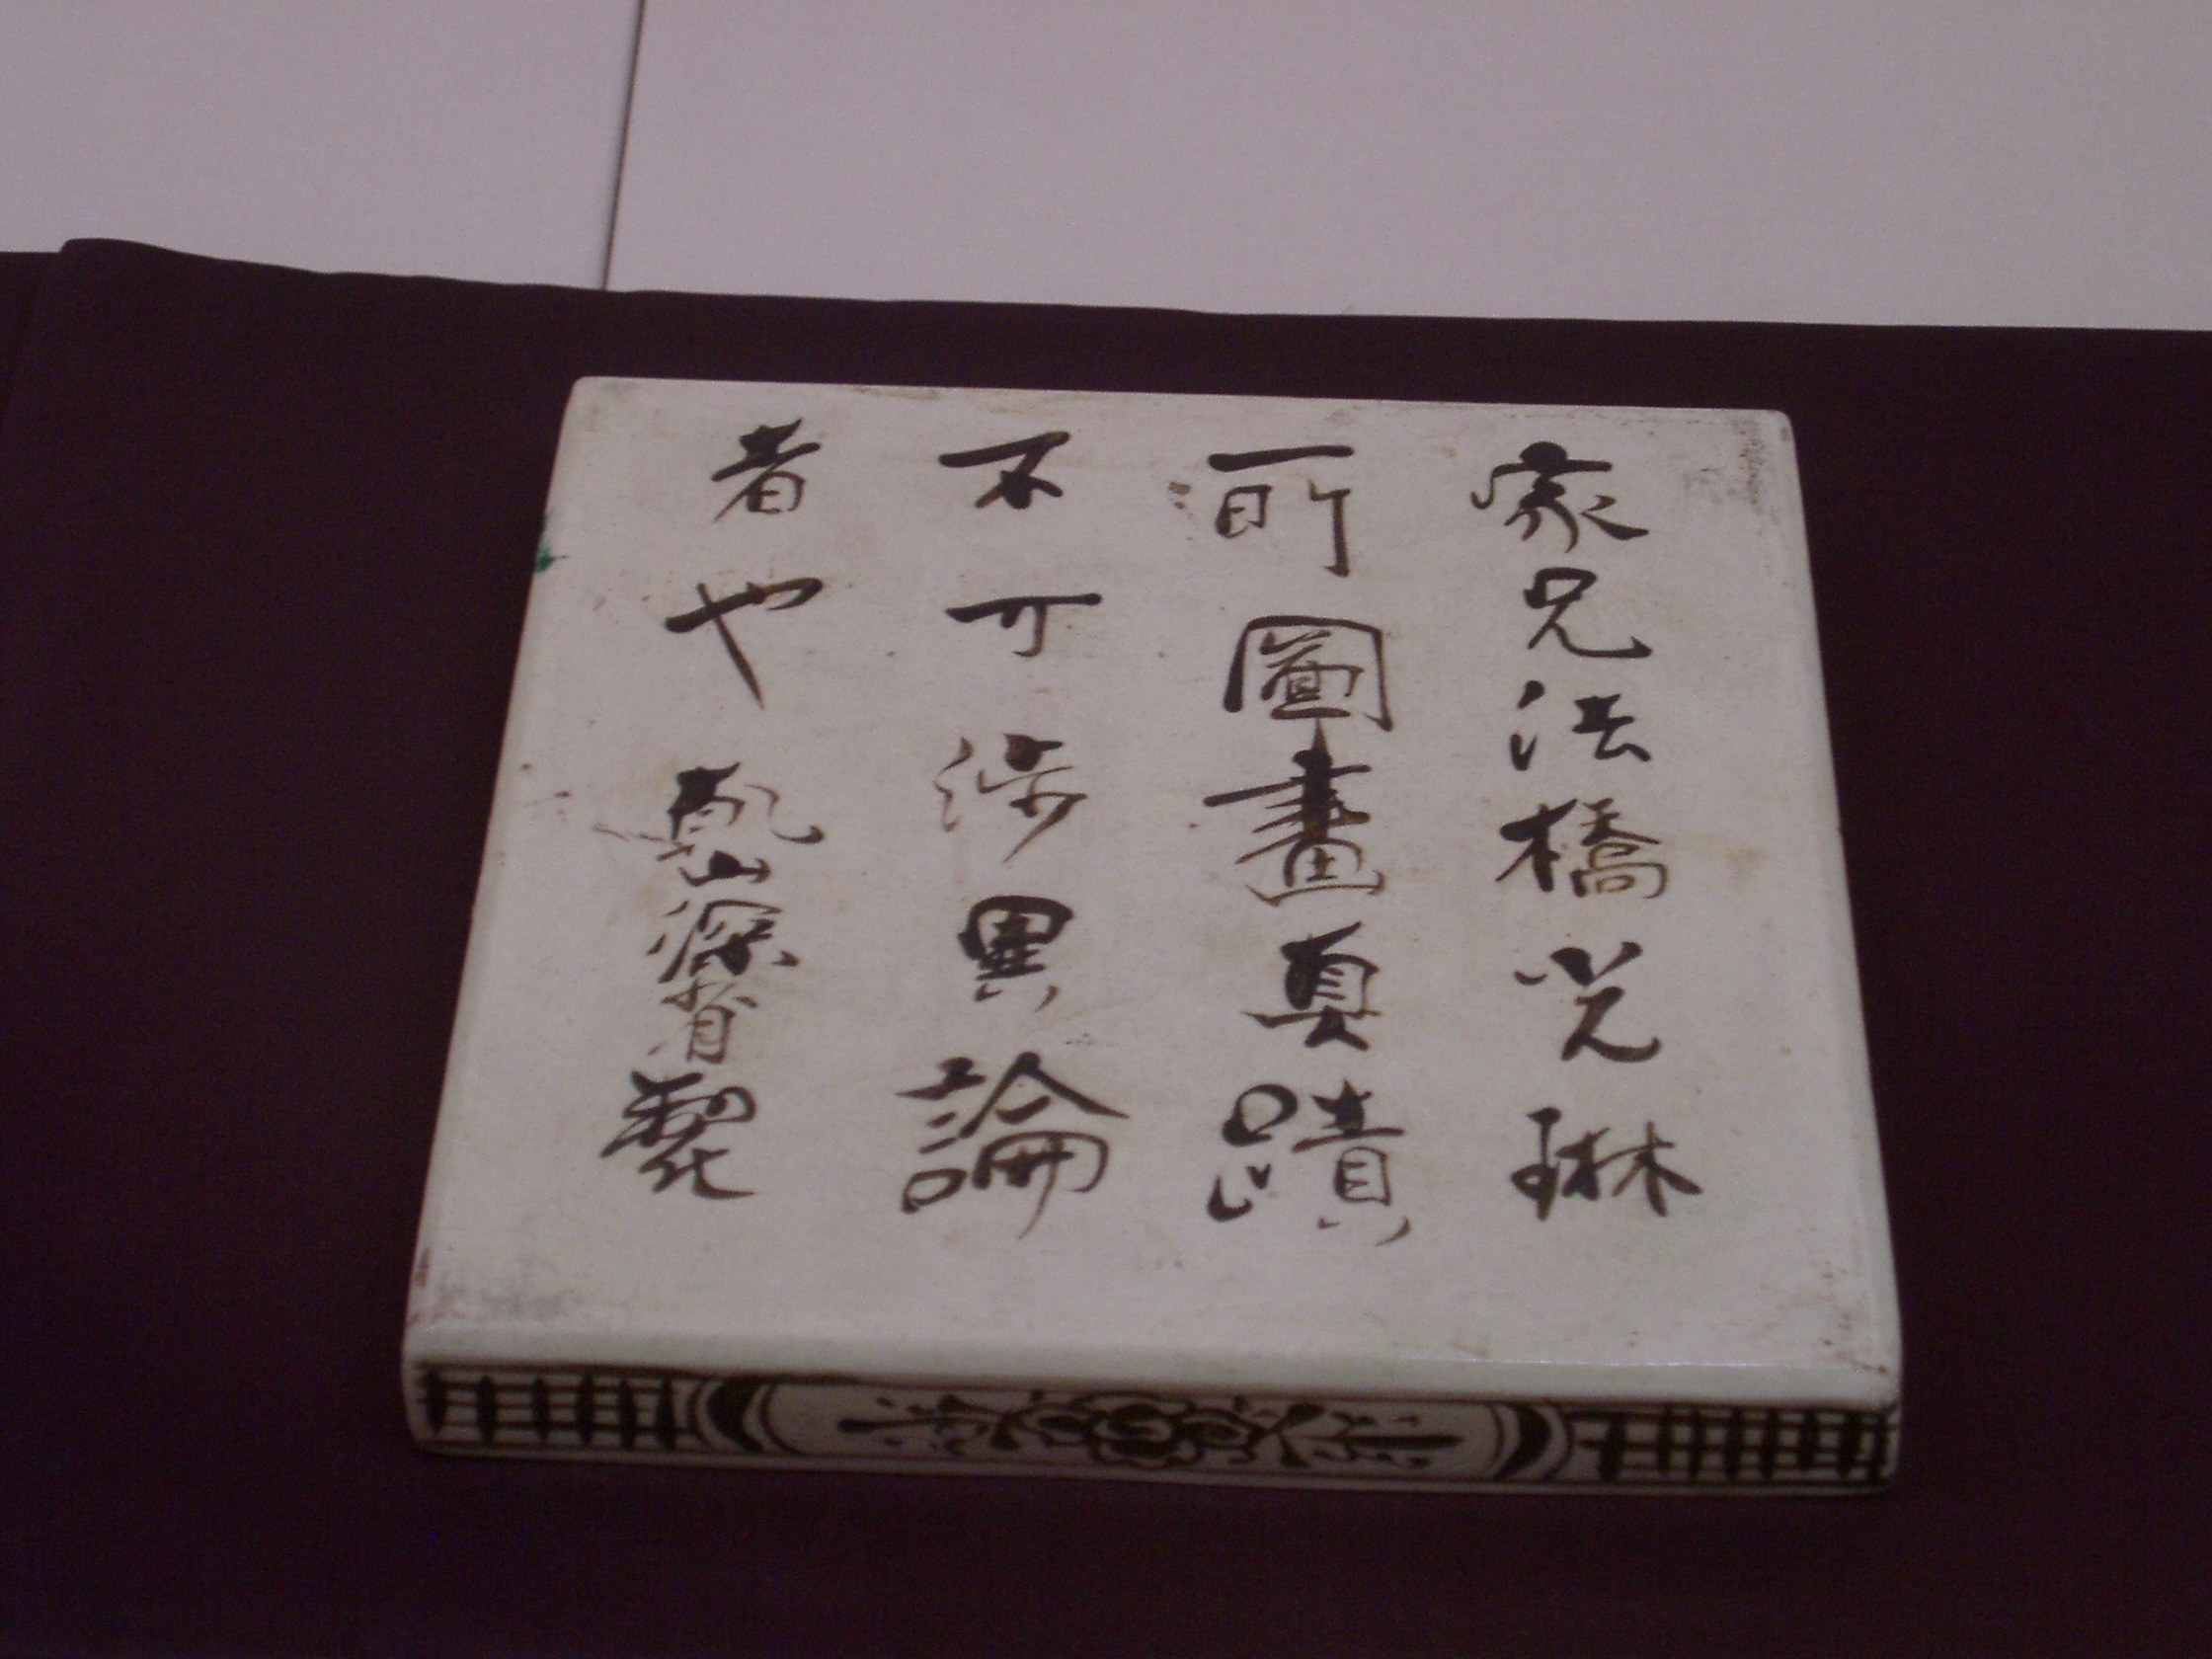 家兄法橋光琳
所圖畫真蹟
不可渉異論
者也 乾山深省製